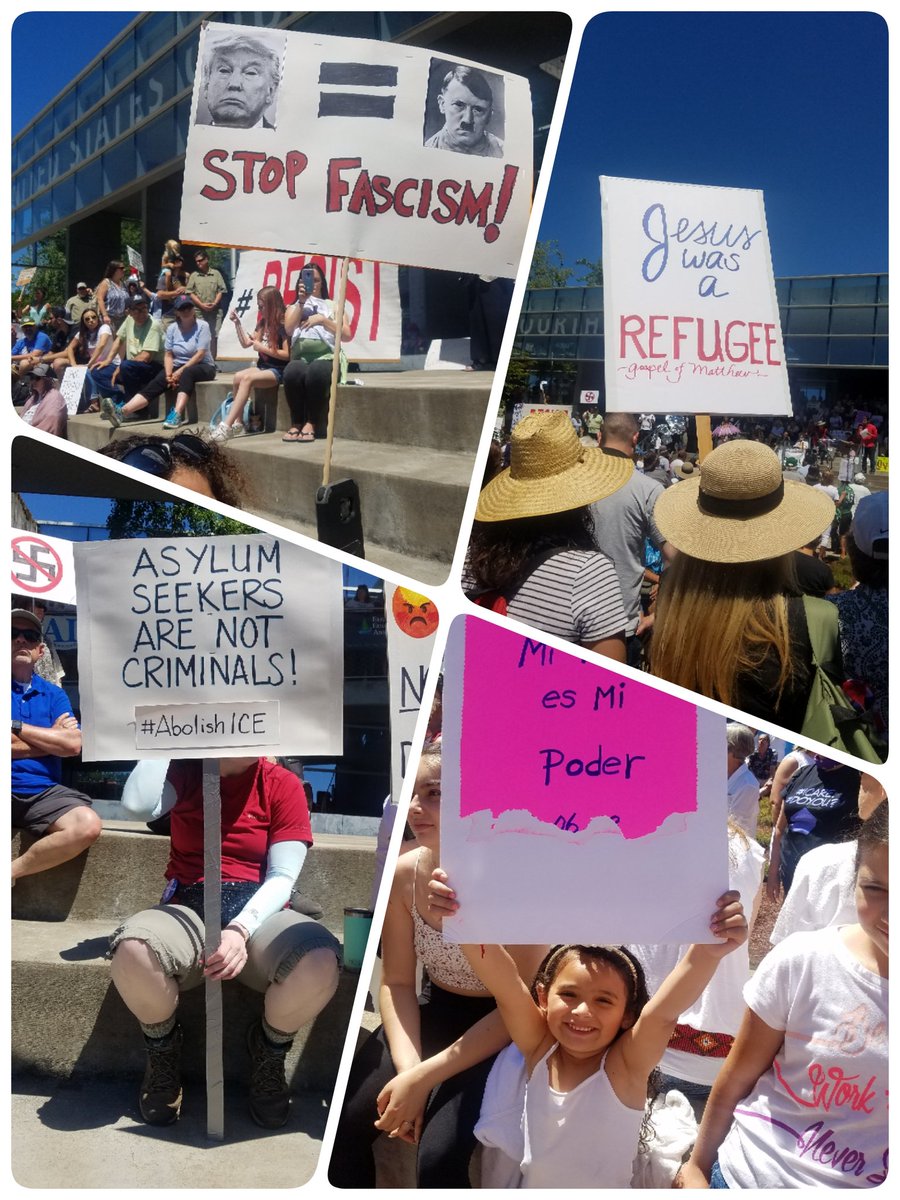 UNITED STATES
=
STOP FASCISM!
#RESIST
Jesus
was
a
REFUGEE
~gospel of Matthew~
ASYLUM
SEEKERS
ARE NOT
CRIMINALS!
#AbolishICE
Mi
es Mi
Poder
#ICARE
DOYOU?
Work
Never